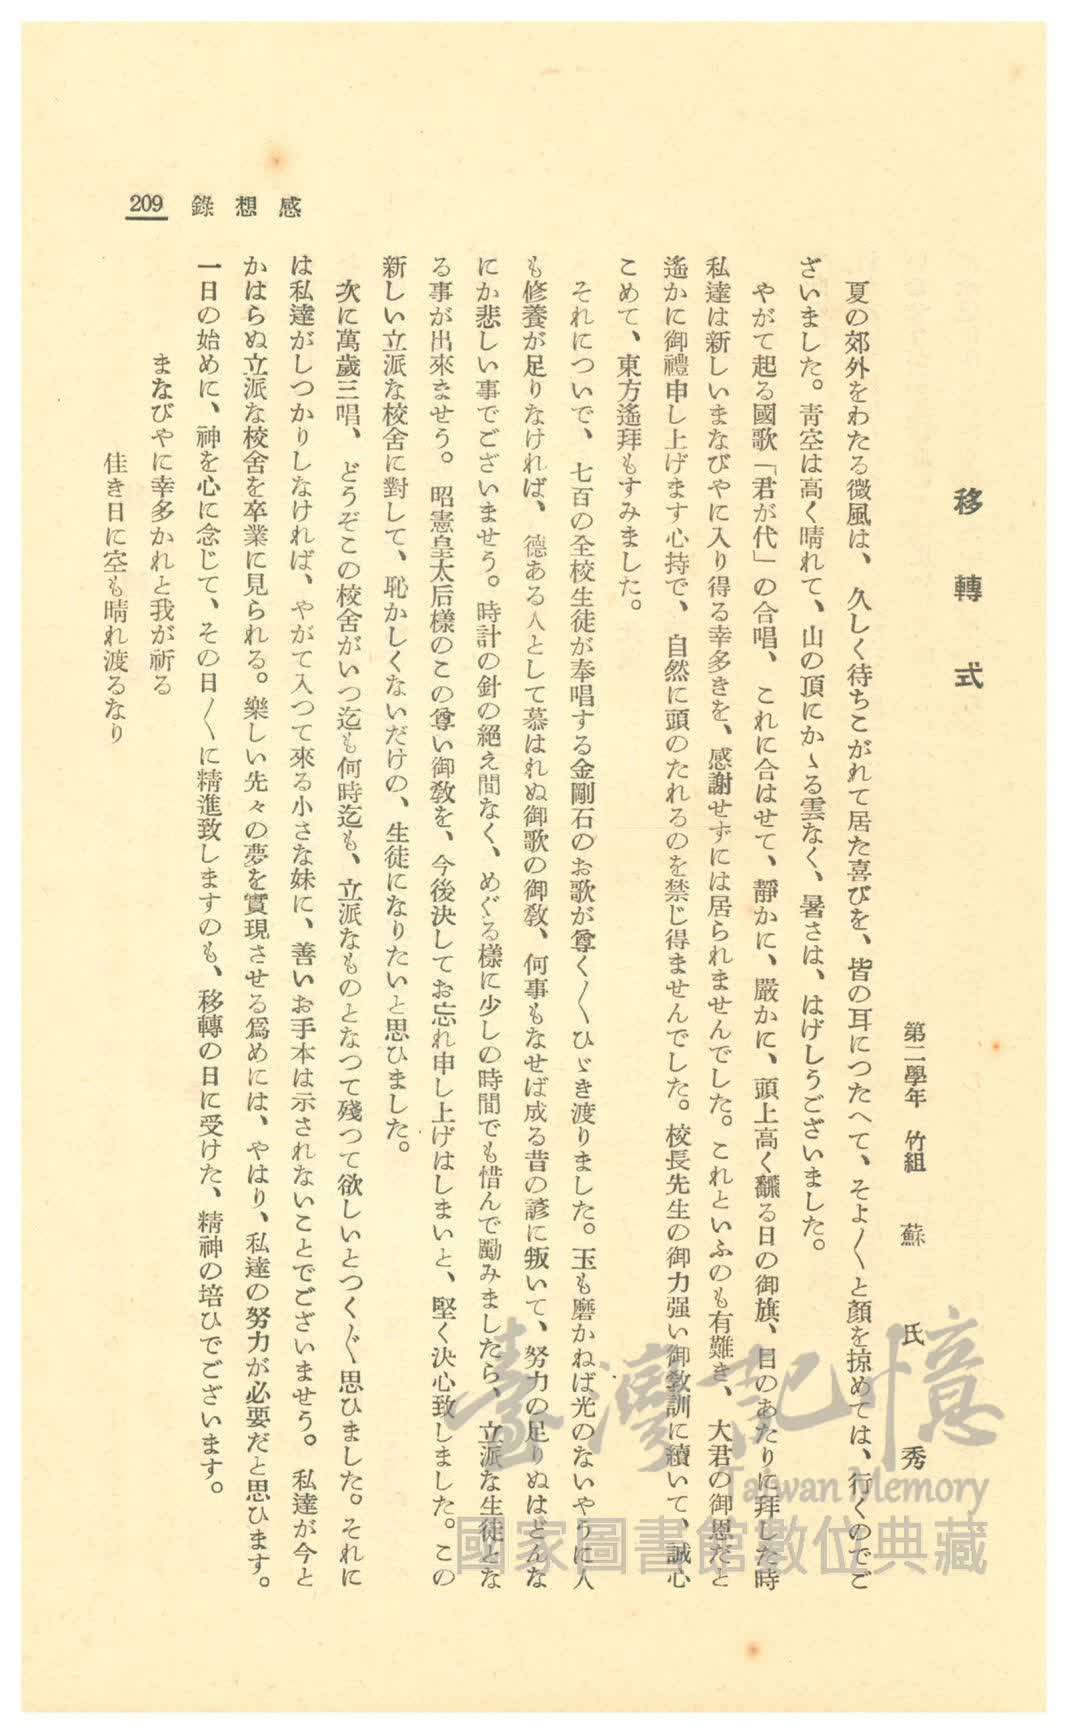 感想錄 209
移轉式
第二學年 竹組 蘇氏秀
夏の郊外をわたる微風は、久しく待ちこがれて居た喜びを、皆の耳につたへて、そよ〳〵と顏を掠めては、行くのでご
ざいました。靑空は高く晴れて、山の頂にかゝる雲なく、暑さは、はげしうございました。
やがて起る國歌「君が代」の合唱、これに合はせて、靜かに、嚴かに、頭上高く飜る日の御旗、目のあたりに拜した時
私達は新しいまなびやに入り得る幸多きを、感謝せずには居られませんでした。これといふのも有難き、大君の御恩だと
遙かに御禮申し上げます心持で、自然に頭のたれるのを禁じ得ませんでした。校長先生の御力强い御敎訓に續いて、誠心
こめて、東方遙拜もすみました。
それについで、七百の全校生徒が奉唱する金剛石のお歌が尊く〳〵ひゞき渡りました。玉も磨かねば光のないやうに人
も修養が足りなければ、德ある人として慕はれぬ御歌の御敎、何事もなせば成る昔の諺に叛いて、努力の足りぬはどんな
にか悲しい事でございませう。時計の針の絕え間なく、めぐる樣に少しの時間でも惜んで勵みましたら、立派な生徒とな
る事が出來ませう。昭憲皇太后樣のこの尊い御敎を、今後決してお忘れ申し上げはしまいと、堅く決心致しました。この
新しい立派な校舍に對して、恥かしくないだけの、生徒になりたいと思ひました。
次に萬歲三唱、どうぞこの校舍がいつ迄も何時迄も、立派なものとなつて殘つて欲しいとつく〴〵思ひました。それに
は私達がしつかりしなければ、やがて入つて來る小さな妹に、善いお手本は示されないことでございませう。私達が今と
かはらぬ立派な校舍を卒業に見られる。樂しい先々の夢を實現させる爲めには、やはり、私達の努力が必要だと思ひます。
一日の始めに、神を心に念じて、その日〳〵に精進致しますのも、移轉の日に受けた、精神の培ひでございます。
まなびやに幸多かれと我が祈る
佳き日に空も晴れ渡るなり
臺灣記憶
Taiwan Memory
國家圖書館數位典藏